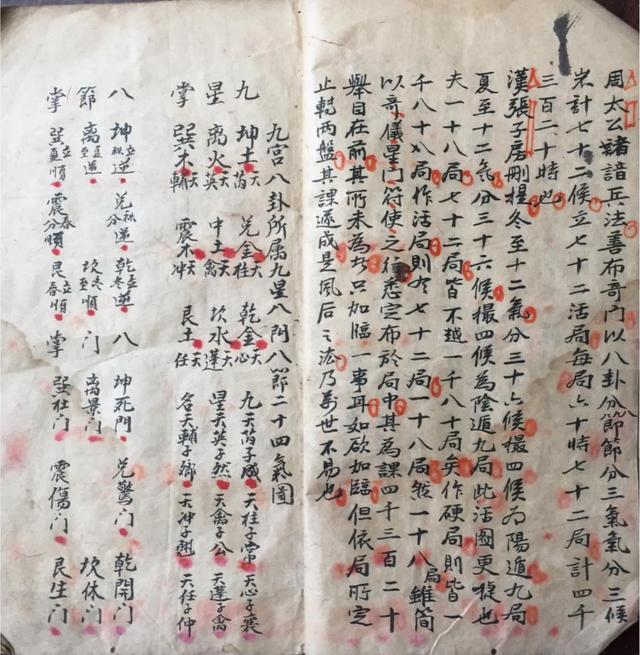 周太公諸諳兵法善布奇门以八卦分節節分三氣氣分三候
岁計七十二候立七十二活局每局六十時七十二局計四千
三百二十時也
漢張子房刪捏冬至十二氣分三十六候撮四候为陽遁九局
夏至十二氣分三十六候撮四候為陰遁九局此活圖更捷也
夫一十八局七十二局皆不越一千八十局矣作硬局則皆一
千八十局作活局則冬七十二局一十八局然一十八局雖简
以奇儀星门符使之往悉定布於局中其為課四千三百二十
舉目在前其所未為者只加臨一事耳如欲加臨但依局所定
止乾两盤其課遂成是風后之法乃萬世不易也
九宫八卦所属九星八門八節二十四氣圖
九 坤土天芮 兑金天柱 乾金天心 九天芮子成 天柱子常 天心子襄
星 离火天英 中土天禽 坎水天蓬 星天英子然 天禽子公 天蓬子禽
掌 巽木天輔 震木天冲 艮土天任 名天輔子鄉 天冲子翹 天任子仲
八 坤立秋逆 兑秋分逆 乾立冬逆 八 坤死門 兑驚门 乾開门
節 离夏至逆 坎冬至順 门 离景门 坎休门
掌 巽立夏順 震春分順 艮立春順 掌 巽杜门 震傷门 艮生门